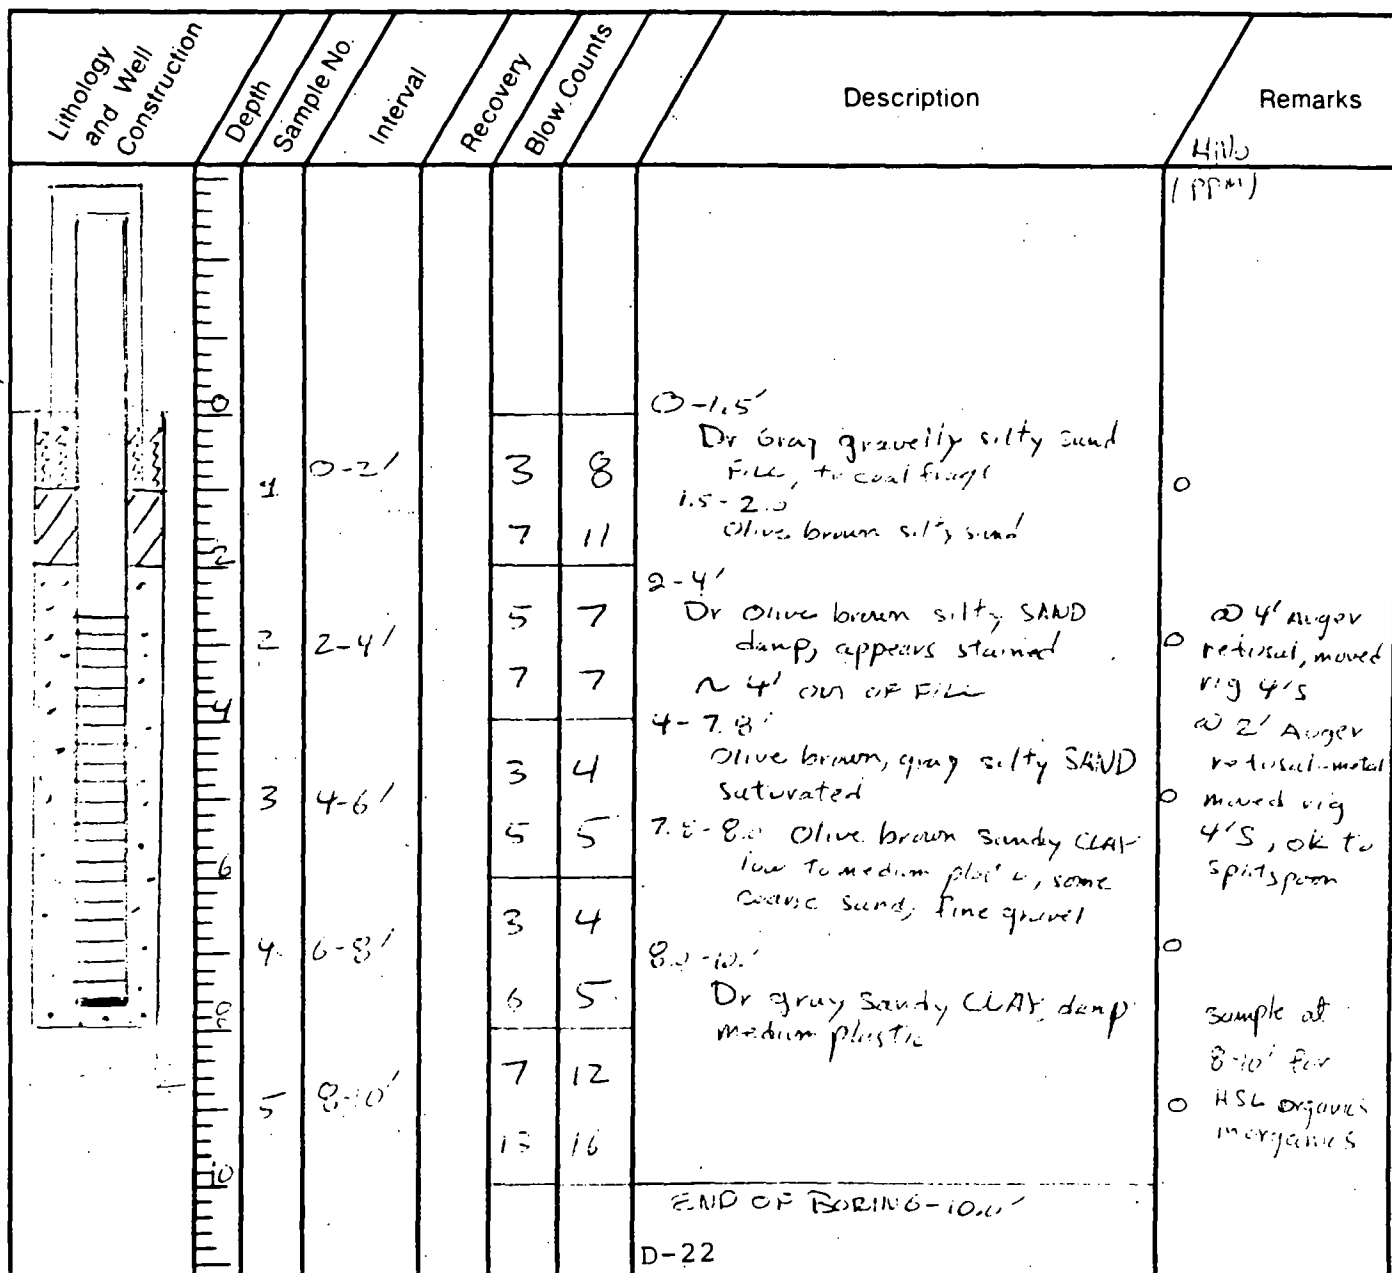 Lithology
and Well
Construction
Depth
Sample No.
Interval
Recovery
Blow Counts
Description
Remarks
HNU
(PPM)
0
2
4
6
8
10
1 0-2' 3 8 0
7 11
2 2-4' 5 7 0
7 7
3 4-6' 3 4 0
5 5
4 6-8' 3 4 0
6 5
5 8-10' 7 12 0
13 16
0-1.5'
Dr Gray gravelly silty sand
FILL, tr coal frags
1.5-2.0
Olive brown silty sand
2-4'
Dr Olive brown silty SAND
damp, appears stained
~ 4' OUT OF FILL
4-7.8'
Olive brown, gray silty SAND
saturated
7.8-8.0 Olive brown sandy CLAY
low to medium some
coarse sand, fine gravel
8.0-10.'
Dr gray sandy CLAY, damp
medium plastic
END OF BORING-10.0'
@ 4' Auger
refusal, moved
rig 4'S
@ 2' Auger
refusal-metal
moved rig
4'S, ok to
splitspoon
sample at
8-10' for
HSL organics
inorganics
D-22